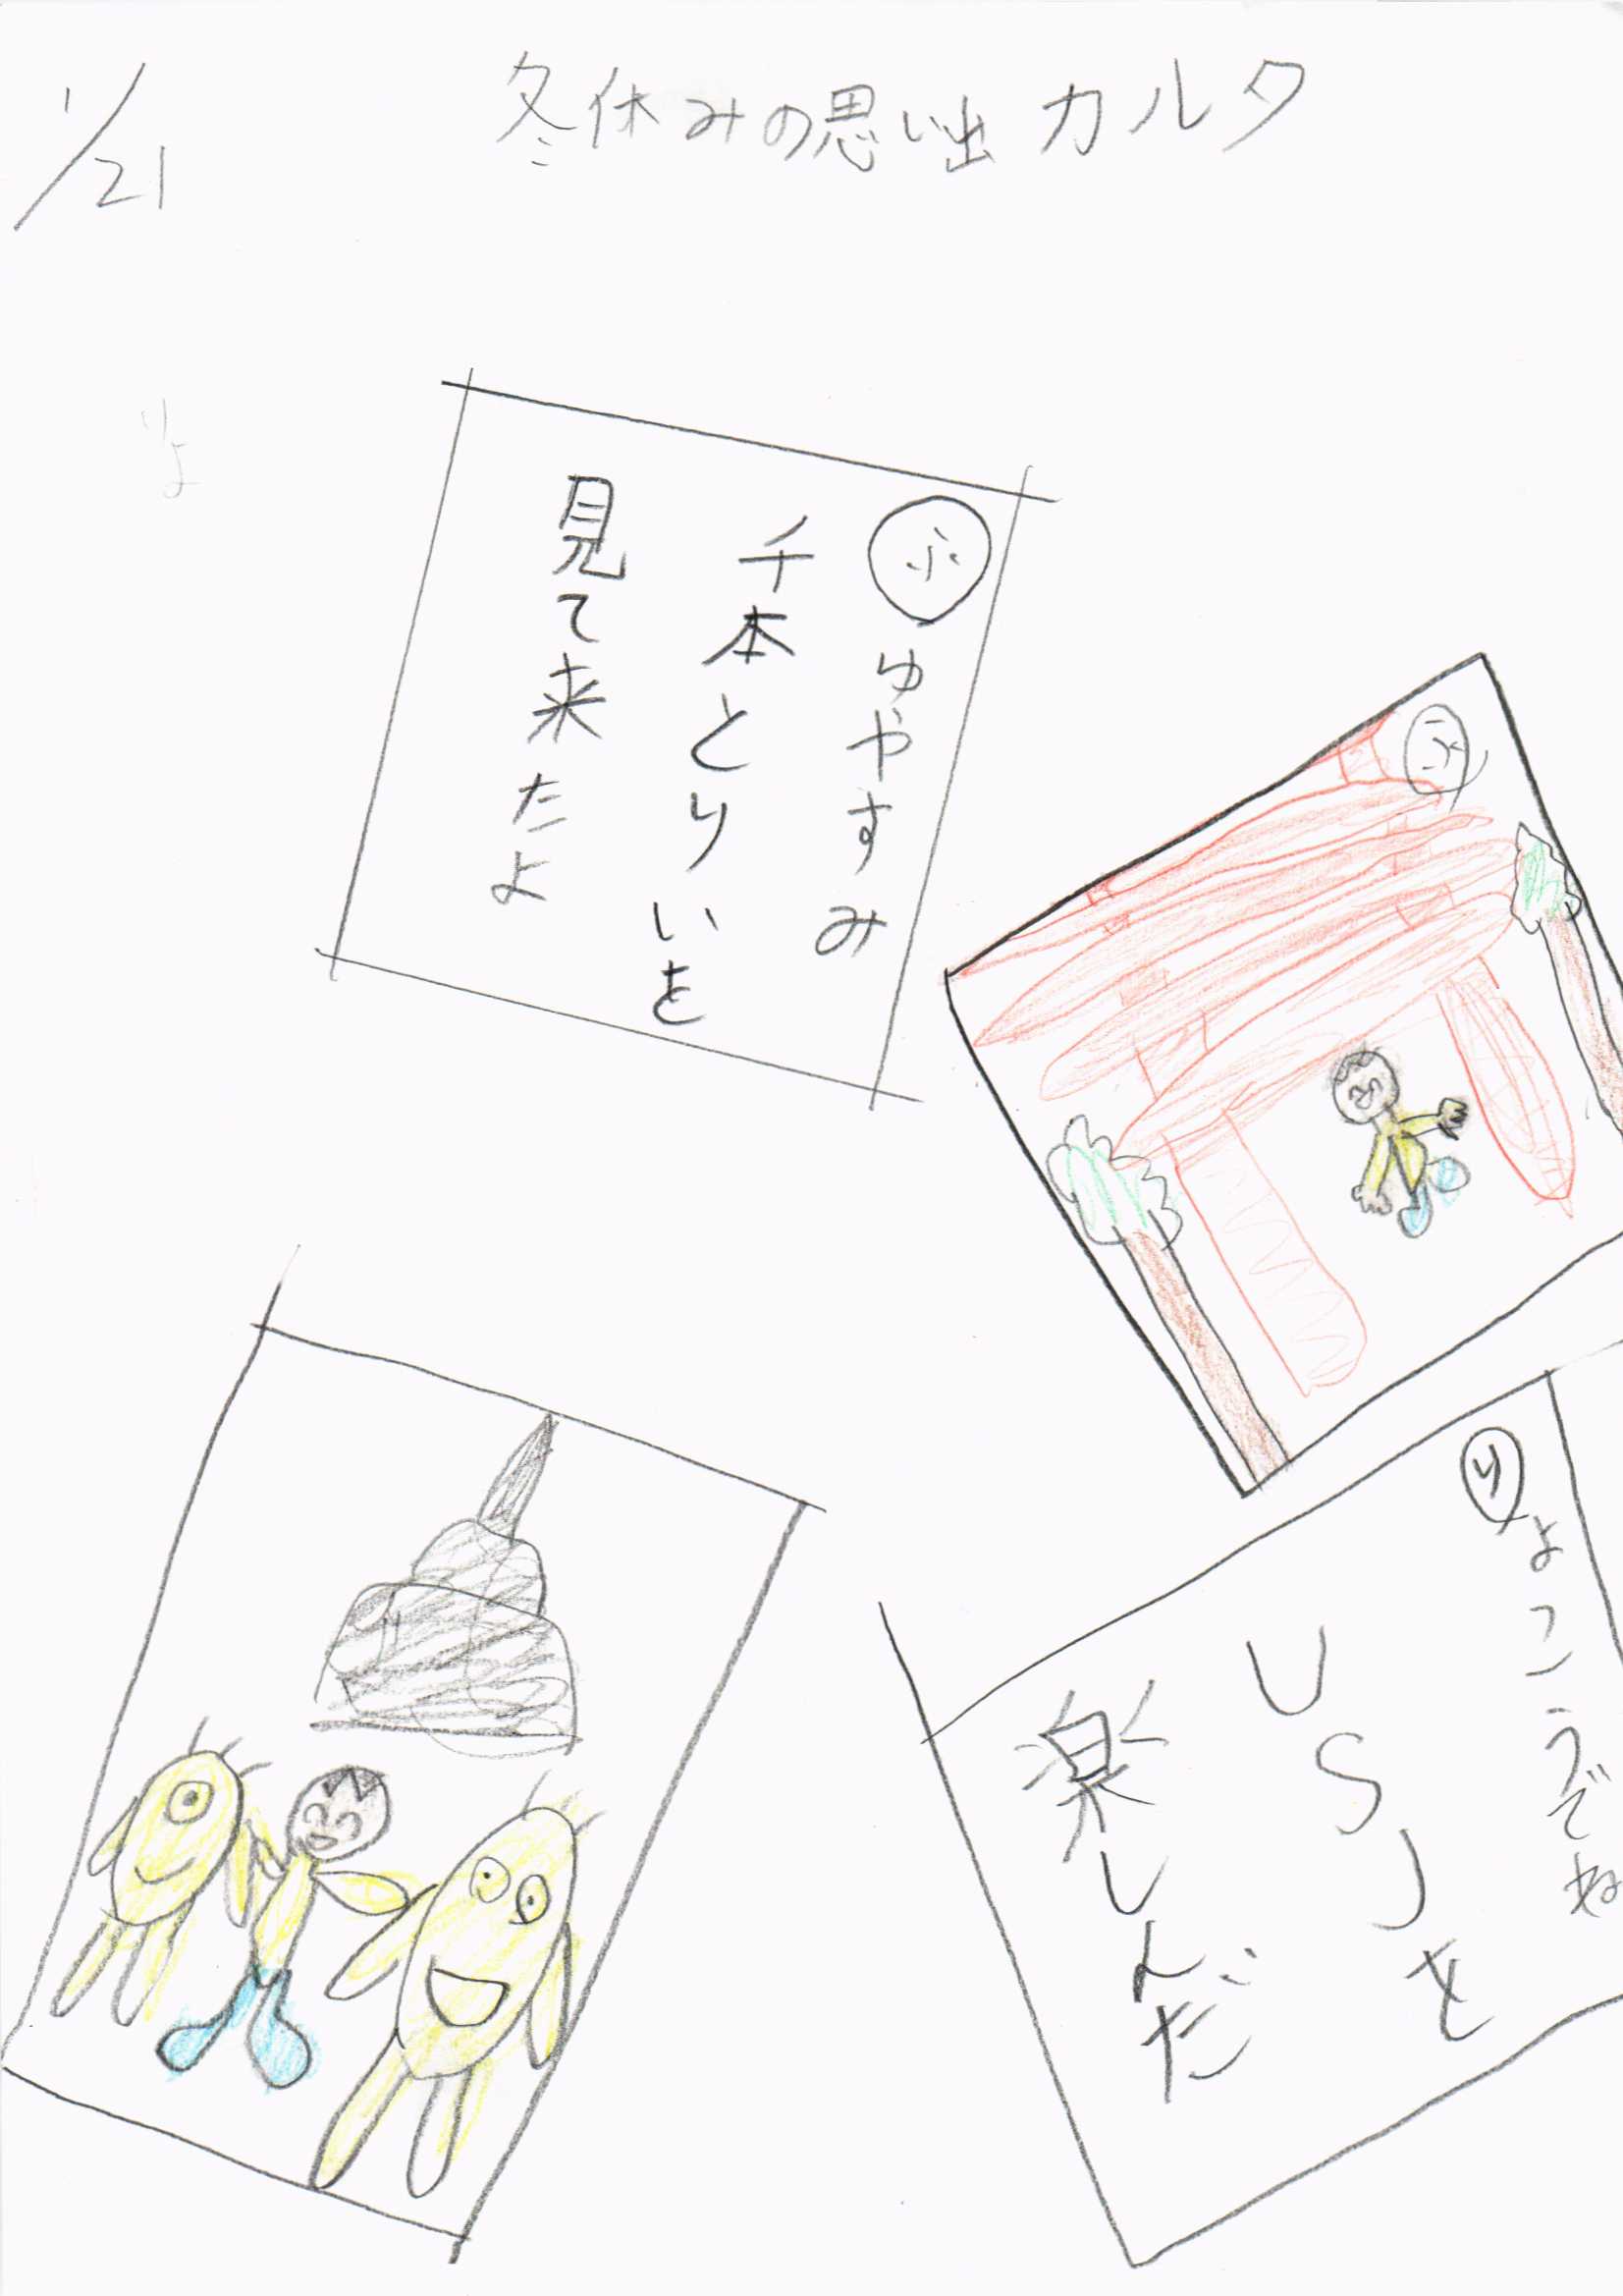 1/21
冬休みの思い出カルタ
ふゆやすみ
千本とりいを
見て来たよ
ふ
りょこうでね
USJを
楽しんだ
りよ